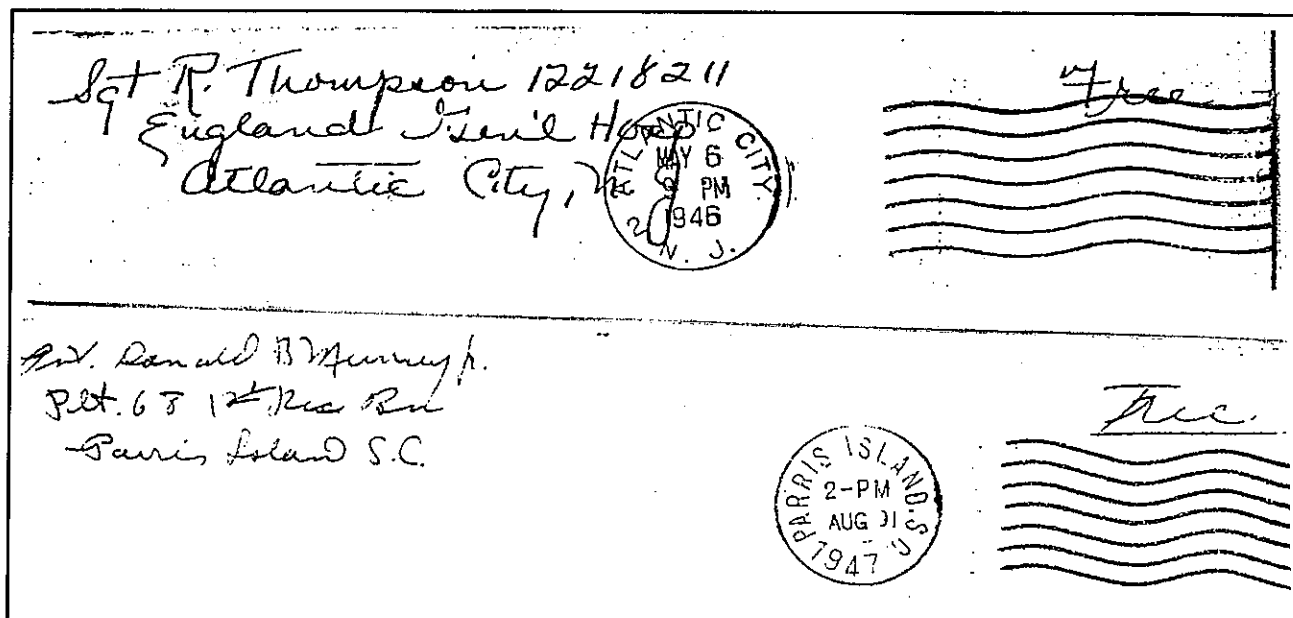 Sgt R. Thompson 12218211
England Gen'l Hosp
Atlantic City, N
Free
ATLANTIC CITY
MAY 6
PM
1946
2
N. J.
Pvt. Donald B Murray Jr.
Plt. 68 1st Rec Bn
Parris Island S.C.
Free.
PARRIS ISLAND, S.C.
2-PM
AUG 31
1947